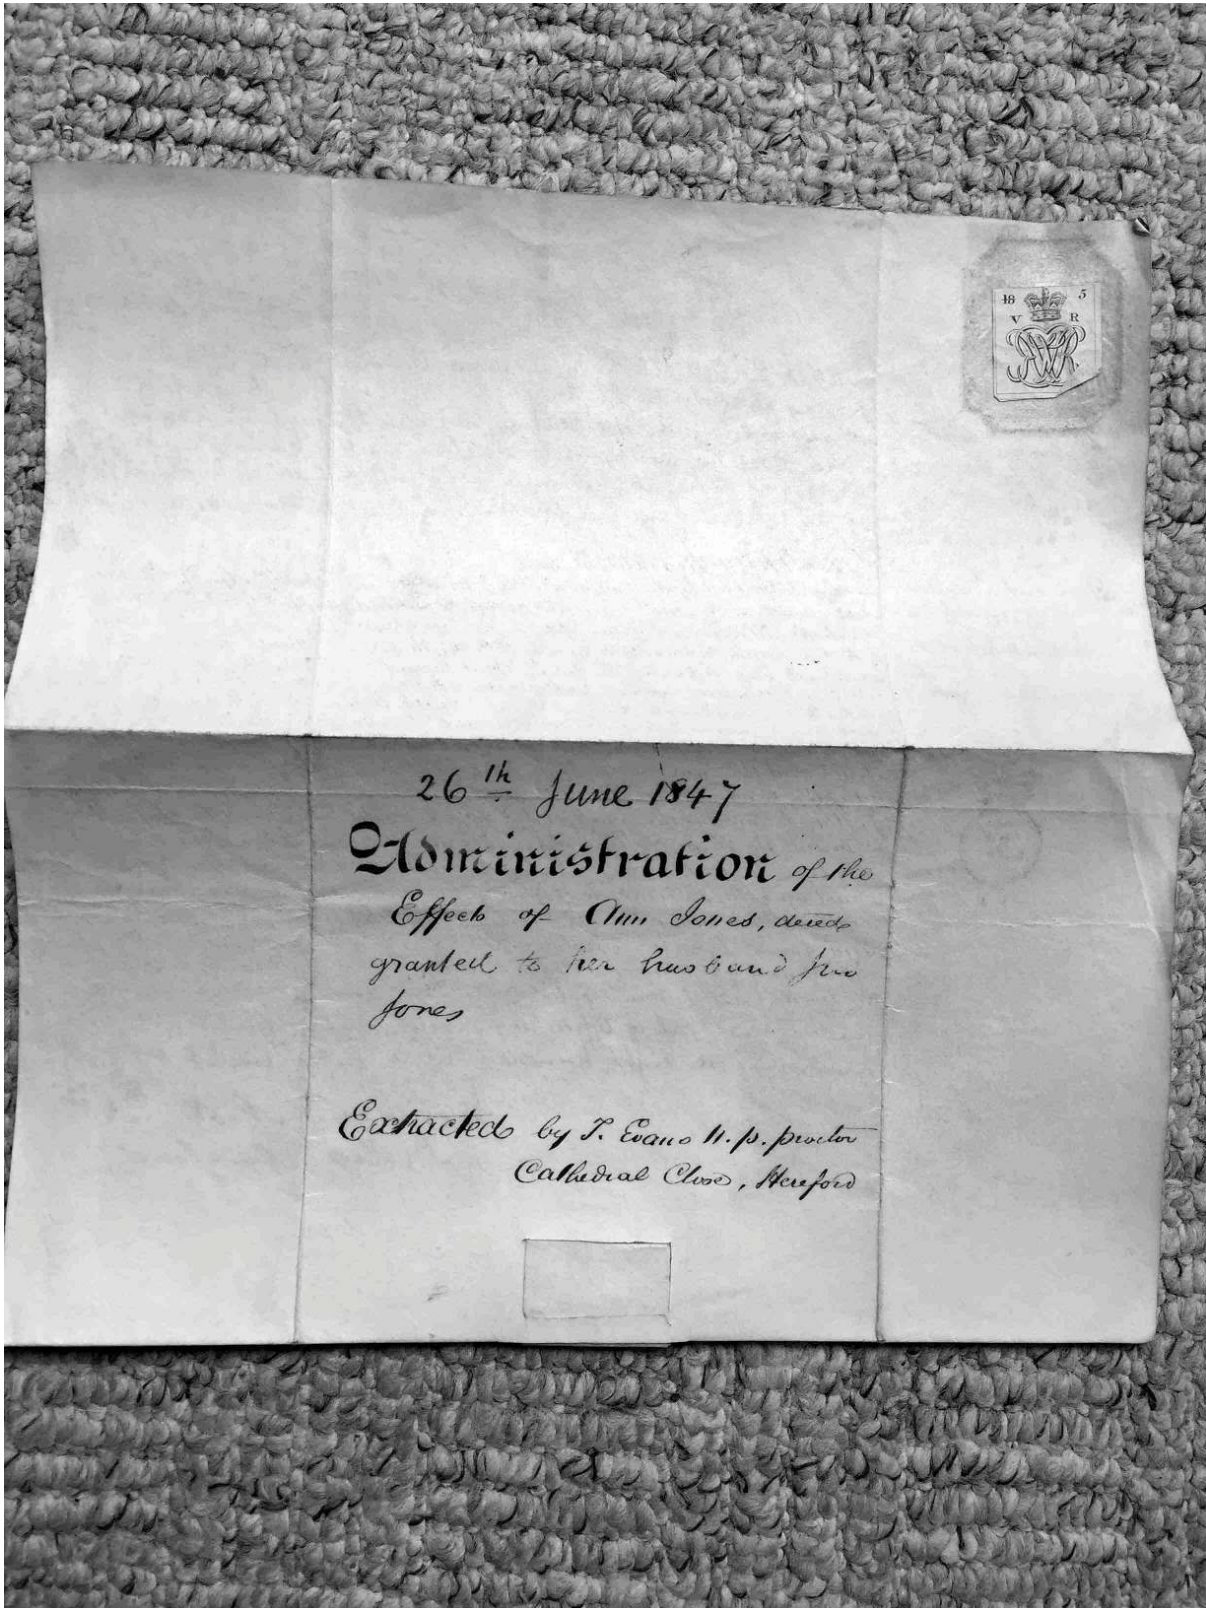 18 5
V R
26th June 1847
Administration of the
Effects of Ann Jones, deced
granted to her husband Jno
Jones
Extracted by T. Evans N. p. proctor
Cathedral Close, Hereford